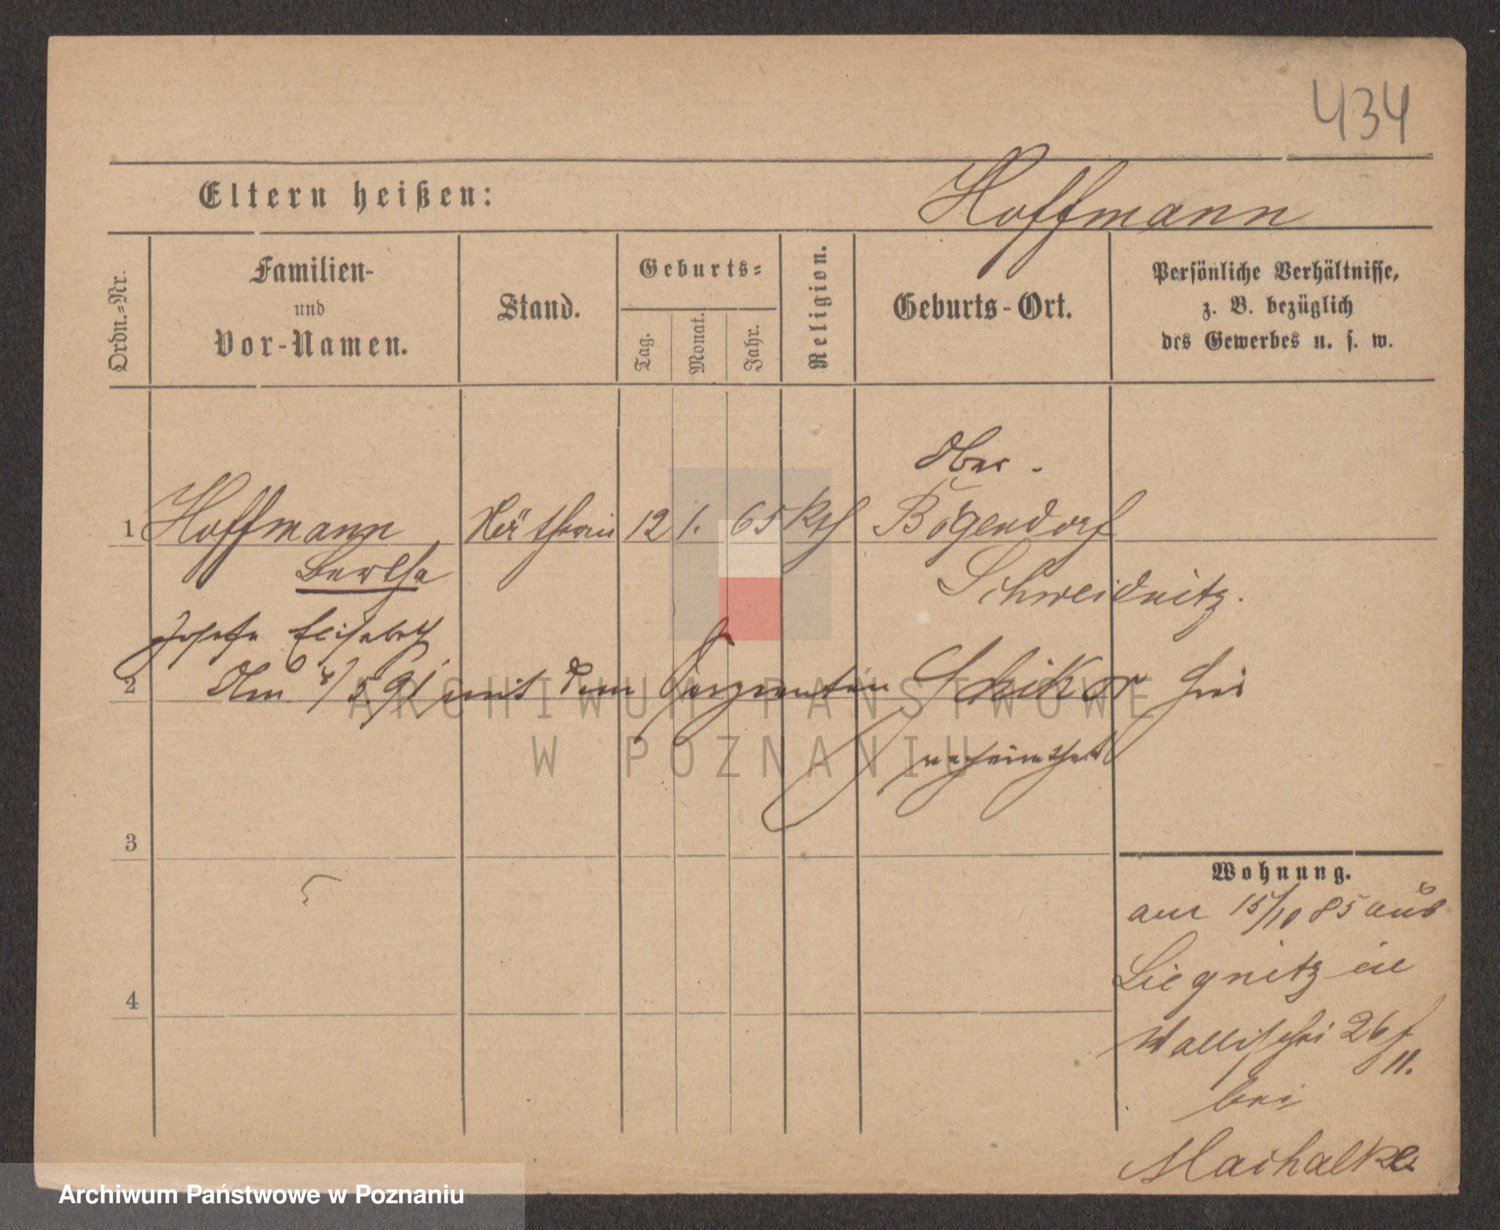 434
Eltern heißen:
Hoffmann
Ordn.=Nr.
Familien-
und
Vor-Namen.
Stand.
Geburts=
Tag.
Monat.
Jahr.
Religion.
Geburts-Ort.
Persönliche Verhältnisse,
z. B. bezüglich
des Gewerbes u. s. w.
Ober-
1 Hoffmann Nätherin 12 1. 65 kth Bögendorf
Bertha Schweidnitz.
Josefa Elisabeth
2 Am 4/5 91 mit dem Sergeanten Schikor hier
verheirathet
3
4
Wohnung.
am 15/10 85 aus
Liegnitz in
Wallischei 26/
11.
bei
Machalke
ARCHIWUM PAŃSTWOWE
W POZNANIU
Archiwum Państwowe w Poznaniu